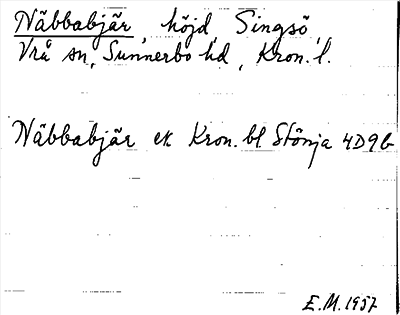 Näbbabjär, höjd, Singsö,
Vrå sn, Sunnerbo hd, Kron. l.
Näbbabjär ek Kron. bl Stönja 4D9b
E.M. 1957